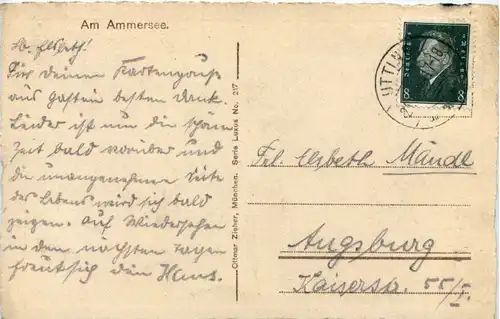 Am Ammersee.
Lb. Elsbeth!
Für deinen Kartengruß
aus Gastein besten Dank.
Leider ist nun die schöne
Zeit bald vorüber und
die unangenehme Seite
des Lebens wird sich bald
zeigen. Auf Wiedersehen
in den nächsten Tagen
freut sich dein Hans.
Ottmar Zieher, München. Serie Luxos No. 217
UTTIN
8 8
Frl. Elsbeth Mändl
Augsburg
Kaiserstr. 55/I.